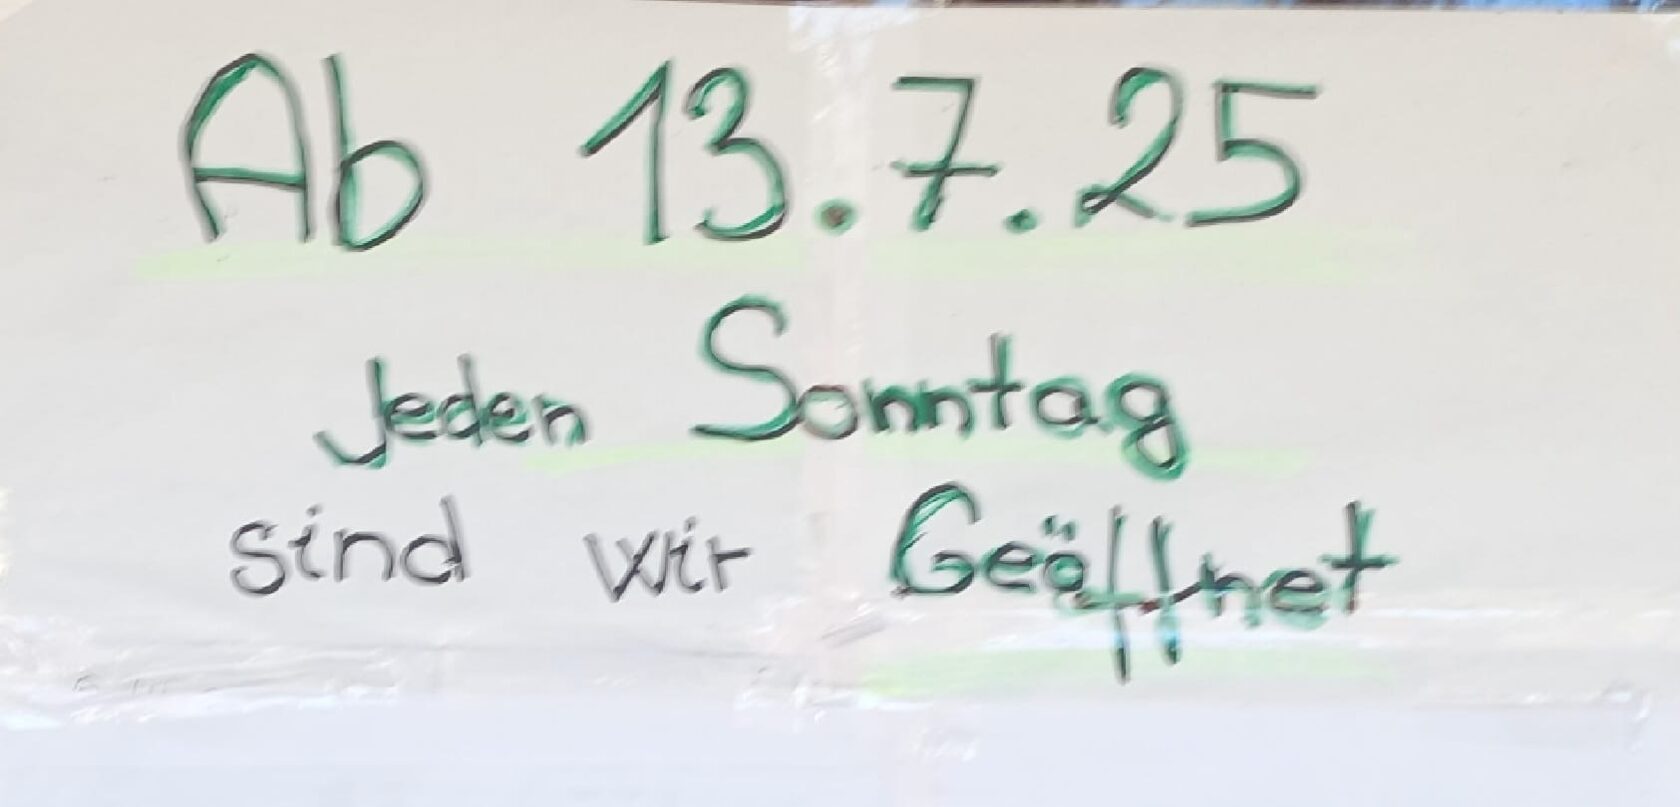 Ab 13.7.25
Jeden Sonntag
sind wir Geöffnet